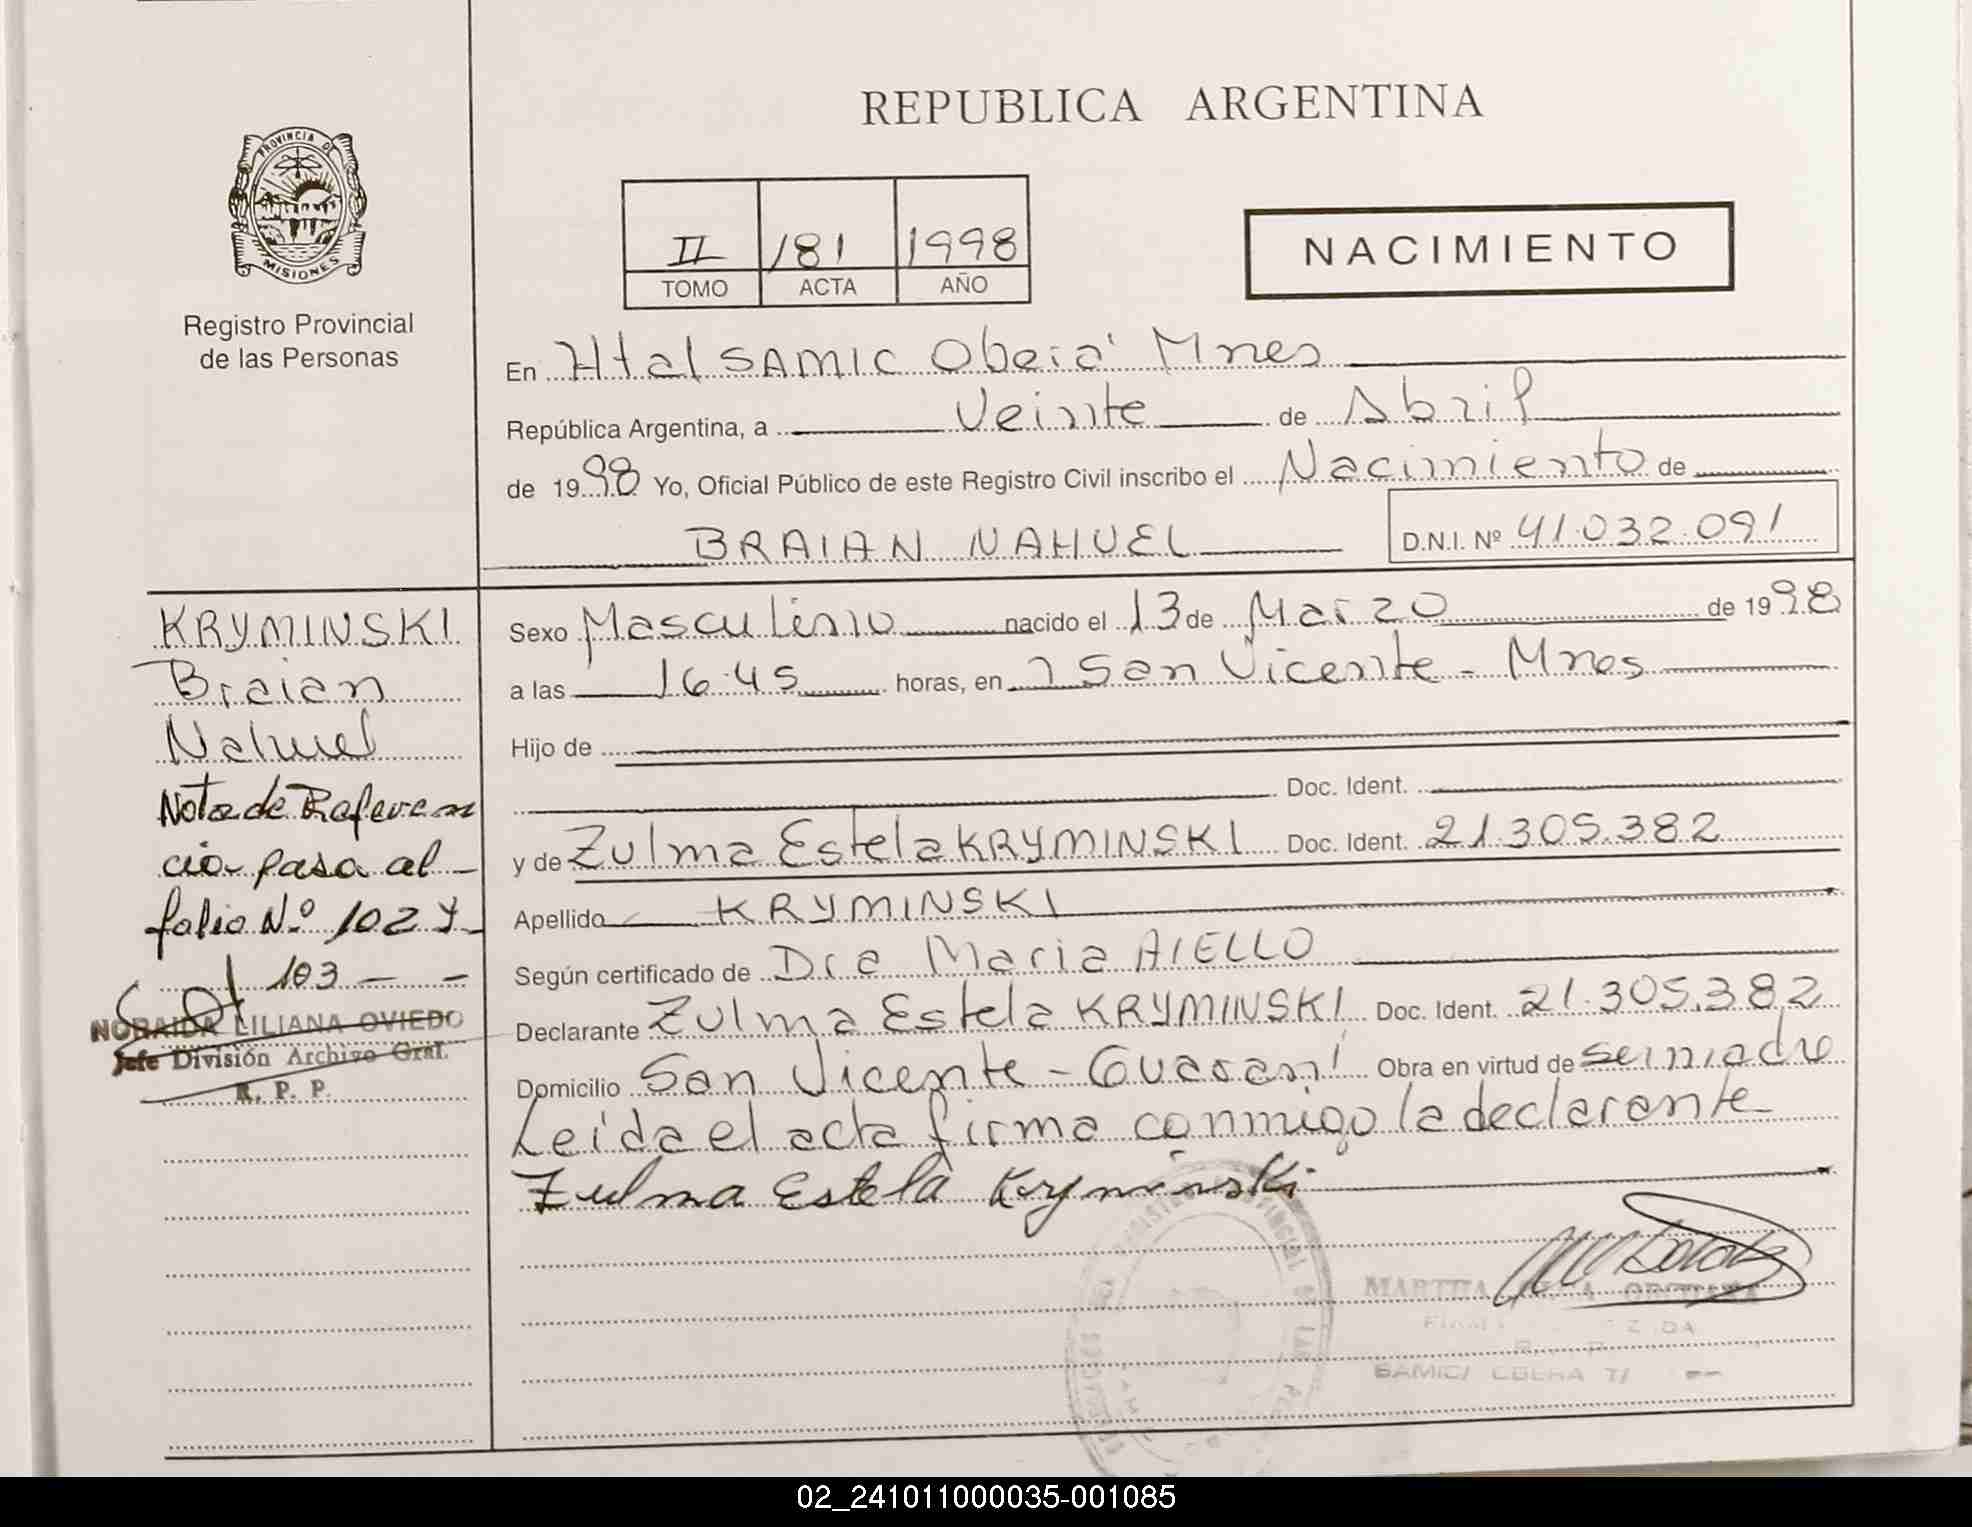 REPUBLICA ARGENTINA
PROVINCIA DE
MISIONES
Registro Provincial
de las Personas
II 181 1998
TOMO ACTA AÑO
NACIMIENTO
En Htal SAMIC Oberá Mnes
República Argentina, a Veinte de Abril
de 1998 Yo, Oficial Público de este Registro Civil inscribo el Nacimiento de
BRAIAN NAHUEL D.N.I. Nº 41.032.091
KRYMINSKI
Braian
Nahuel
Nota de Referen
cia pasa al
folio Nº 102 y
103
NORAIDA LILIANA OVIEDO
Jefe División Archivo Gral.
R. P. P.
Sexo Masculino nacido el 13 de Marzo de 1998
a las 16.45 horas, en San Vicente - Mnes
Hijo de
Doc. Ident.
y de Zulma Estela KRYMINSKI Doc. Ident. 21.305.382
Apellido KRYMINSKI
Según certificado de Dra Maria AIELLO
Declarante Zulma Estela KRYMINSKI Doc. Ident. 21.305.382
Domicilio San Vicente - Guaraní Obra en virtud de ser madre
Leída el acta firma conmigo la declarante
Zulma Estela Kryminski
MARTHA
02_241011000035-001085